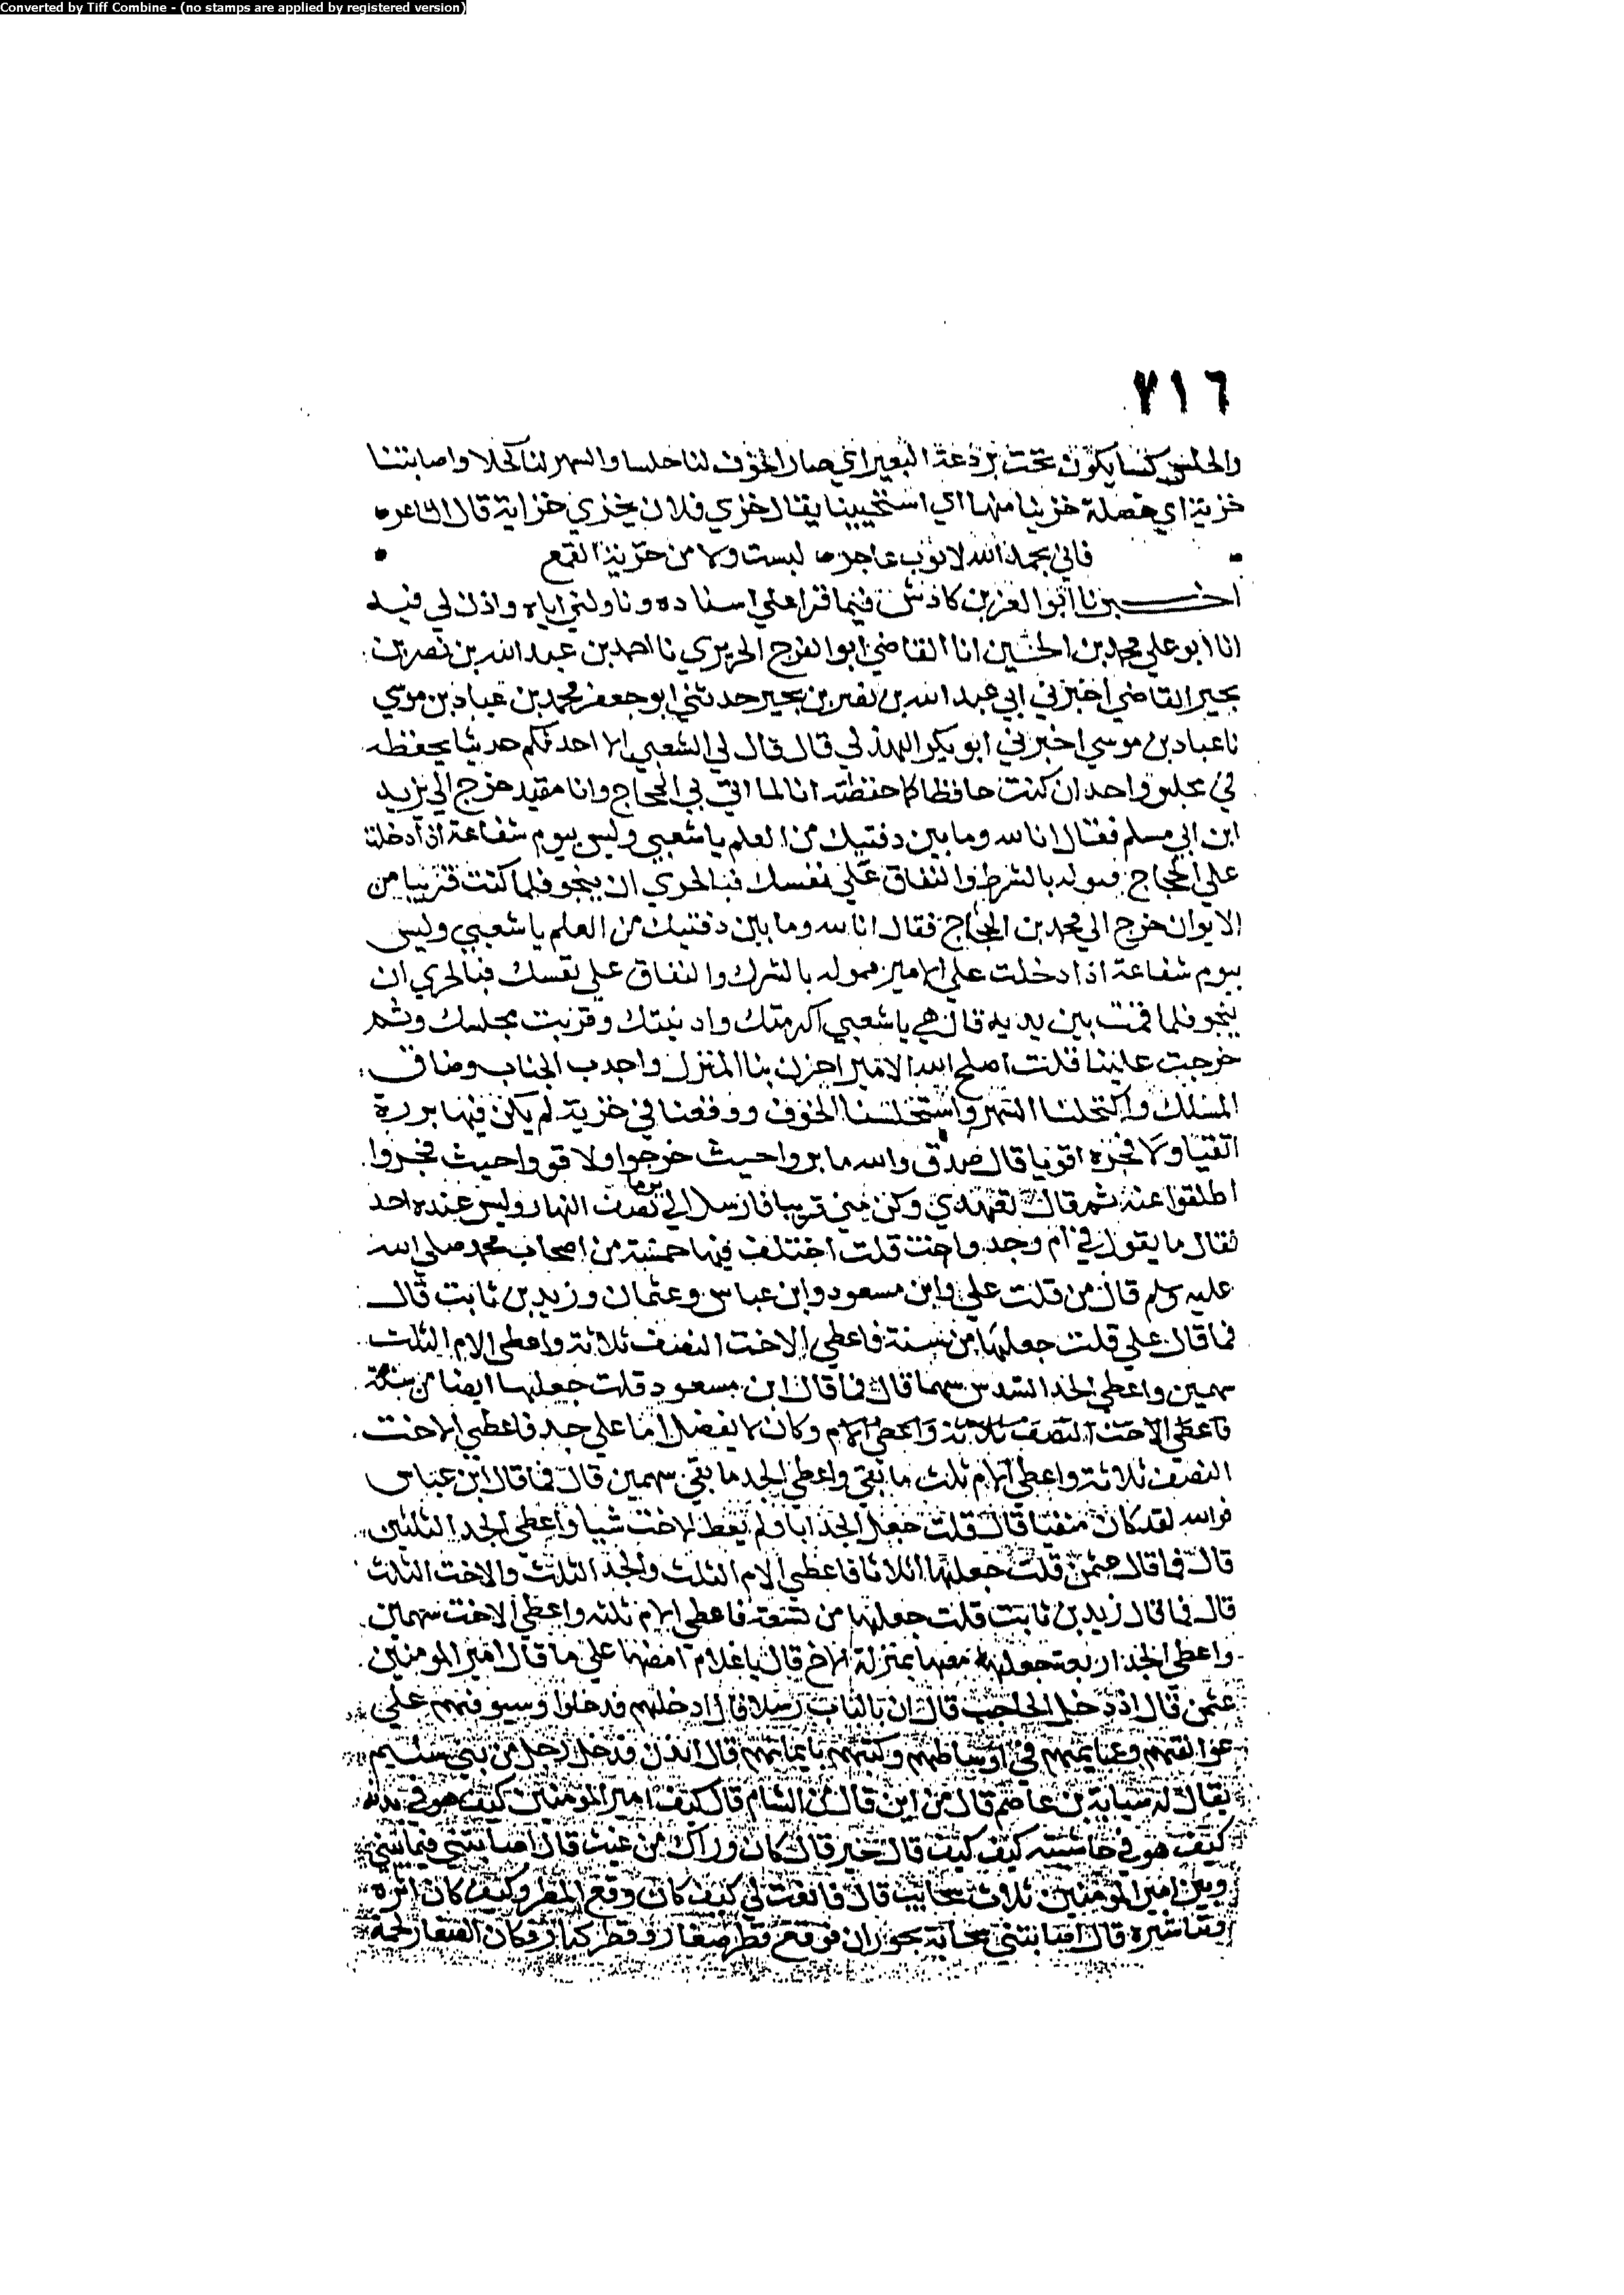 Converted by Tiff Combine - (no stamps are applied by registered version)
٧١٦
والحلس كسا يكون تحت بردعة البعير اي صار الخوف لنا حلسا والسهر لنا كحلا واصابتنا
خزية اي خصلة خزينا منها اي استحيينا يقال خزي فلان يخزي خزاية قال الشاعر ه
فاني بحمد الله لا ثوب عاجز ه لبست ولا من خزية اتقنع
اخبرنا ابو العز بن كادش فيما قرا علي اسناده وناولني اياه واذن لي فيه
انا ابو علي محمد بن الحسين انا القاضي ابو الفرج الجريري نا احمد بن عبد الله بن نصر بن
بحير القاضي اخبرني ابي عبد الله بن نصر بن بحير حدثني ابو جعفر محمد بن عباد بن موسي
نا عباد بن موسي اخبرني ابو بكر الهذلي قال قال لي الشعبي الا احدثكم حديثا تحفظه
في مجلس واحد ان كنت حافظا كما حفظته انا لما اتي بي الحجاج وانا مقيد خرج الي يزيد
ابن ابي مسلم فقال انا لله وما بين دفتيك من العلم يا شعبي وليس بيوم شفاعة اذا دخلت
علي الحجاج بالشرك والنفاق علي نفسك فبالحري ان ينجو فلما كنت قريبا من
الايوان خرج الي محمد بن الحجاج فقال انا لله وما بين دفتيك من العلم يا شعبي وليس
بيوم شفاعة اذا دخلت علي الامير بالشرك والنفاق علي نفسك فبالحري ان
ينجو فلما قمت بين يديه قال هي يا شعبي اكرمتك وادنيتك وقربت مجلسك وثم
خرجت علينا قلت اصلح الله الامير احزن بنا المنزل واجدب الجناب وضاق
المسلك واكتحلنا السهر واستحلسنا الخوف ووقعنا في خزية لم يكن فيها بررة
اتقيا ولا فجره اقويا قال صدق والله ما بروا حيث خرجوا ولا قووا حيث فجروا
اطلقوا عنه ثم قال تعهدي وكن مني قريبا فارسل الي يوما نصف النهار وليس عنده احد
فقال ما يقول في ام وجد واخت قلت اختلف فيها خمسة من اصحاب محمد صلي الله
عليه وسلم قال من قلت علي وابن مسعود وابن عباس وعثمان وزيد بن ثابت قال
فما قال علي قلت جعلها من ستة فاعطي الاخت النصف ثلاثة واعطي الام الثلث
سهمين واعطي الجد السدس سهما قال فما قال ابن مسعود قلت جعلها ايضا من ستة
فاعطي الاخت النصف ثلاثة واعطي الام وكان لا يفضل اما علي جد فاعطي الاخت
النصف ثلاثة واعطي الام ثلث ما بقي واعطي الجد ما بقي سهمين قال فما قال ابن عباس
فوالله لقد كان منقبا قال قلت جعل الجد ابا ولم يعط الاخت شيا واعطي الجد الثلثين
قال فما قال عثمن قلت جعلها اثلاثا فاعطي الام الثلث والجد الثلث والاخت الثلث
قال فما قال زيد بن ثابت قلت جعلها من تسعة فاعطي الام ثلثه واعطي الاخت سهمين
واعطي الجد اربعة جعلها معها بمنزلة الاخ قال يا غلام امضها علي ما قال امير المومنين
عثمن قال اذ دخل الحاجب قال ان بالباب رسلا قال ادخلهم فدخلوا وسيوفهم علي
عواتقهم وعمايمهم في اوساطهم وكتبهم بايمانهم قال ائذن فدخل رجل من بني سليم
يقال له سيابة بن عاصم قال من اين قال من الشام قال كيف امير المومنين كيف هو في بدنه
كيف هو في حاشيته كيف كيف قال خير قال كان وراك من غيث قال اصابتني فيما بيني
وبين امير المومنين ثلاث سحايب قال فانعت لي كيف كان وقع المطر وكيف كان اثره
وتباشيره قال اصابتني سحابة بحوران فوقع قطر صغار وقطر كبار فكان الصغار لحمة